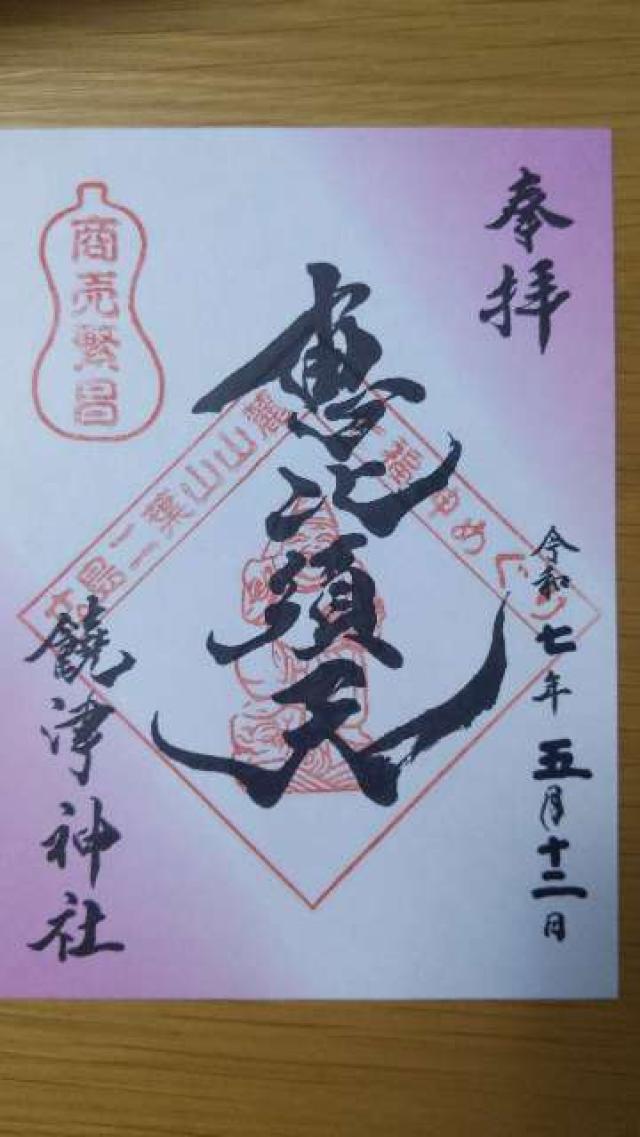 奉拝
令和七年五月十二日
恵比須天
商売繁昌
広島二葉山山麓
福神めぐり
饒津神社